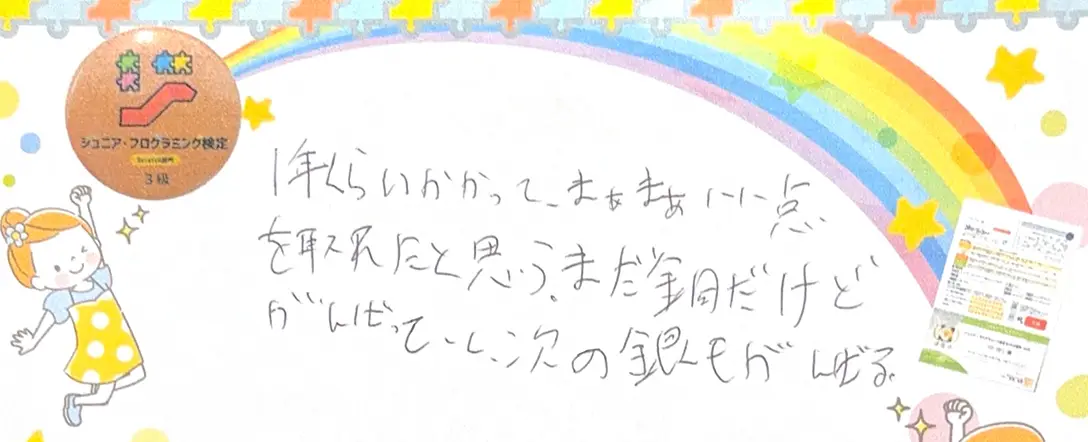 ジュニア・プログラミング検定
Scratch部門
3級
1年くらいかかって、まぁまぁいい点
を取れたと思う。まだ銅だけど
がんばって、次の銀もがんばる。